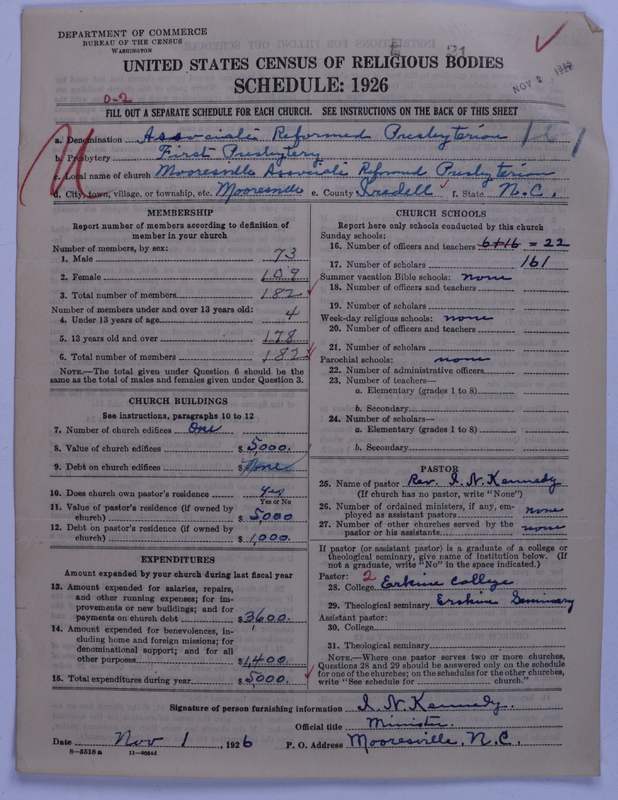 DEPARTMENT OF COMMERCE
BUREAU OF THE CENSUS
WASHINGTON
21
UNITED STATES CENSUS OF RELIGIOUS BODIES
SCHEDULE: 1926
NOV 2
0-2
FILL OUT A SEPARATE SCHEDULE FOR EACH CHURCH. SEE INSTRUCTIONS ON THE BACK OF THIS SHEET
a. Denomination Associate Reformed Presbyterian
b. Presbytery First Presbytery
c. Local name of church Mooresville Associate Reformed Presbyterian
d. City, town, village, or township, etc. Mooresville e. County Iredell f. State N.C.
MEMBERSHIP
Report number of members according to definition of
member in your church
Number of members, by sex:
1. Male 73
2. Female 109
3. Total number of members 182
Number of members under and over 13 years old:
4. Under 13 years of age 4
5. 13 years old and over 178
6. Total number of members 182
NOTE.—The total given under Question 6 should be the
same as the total of males and females given under Question 3.
CHURCH BUILDINGS
See instructions, paragraphs 10 to 12
7. Number of church edifices One
8. Value of church edifices $ 5,000.
9. Debt on church edifices $ None
10. Does church own pastor's residence Yes
Yes or No
11. Value of pastor's residence (if owned by
church) $ 5,000
12. Debt on pastor's residence (if owned by
church) $ 1,000
EXPENDITURES
Amount expended by your church during last fiscal year
13. Amount expended for salaries, repairs,
and other running expenses; for im-
provements or new buildings; and for
payments on church debt $ 3600.
14. Amount expended for benevolences, in-
cluding home and foreign missions; for
denominational support; and for all
other purposes $ 1,400
15. Total expenditures during year $ 5000.
CHURCH SCHOOLS
Report here only schools conducted by this church
Sunday schools:
16. Number of officers and teachers 6+16 = 22
17. Number of scholars 161
Summer vacation Bible schools: none
18. Number of officers and teachers
19. Number of scholars
Week-day religious schools: none
20. Number of officers and teachers
21. Number of scholars
Parochial schools: none
22. Number of administrative officers
23. Number of teachers—
a. Elementary (grades 1 to 8)
b. Secondary
24. Number of scholars—
a. Elementary (grades 1 to 8)
b. Secondary
PASTOR
25. Name of pastor Rev. I. N. Kennedy
(If church has no pastor, write "None")
26. Number of ordained ministers, if any, em-
ployed as assistant pastors none
27. Number of other churches served by the
pastor or his assistants none
If pastor (or assistant pastor) is a graduate of a college or
theological seminary, give name of institution below. (If
not a graduate, write "No" in the space indicated.)
Pastor: 2
28. College Erskine College
29. Theological seminary Erskine Seminary
Assistant pastor:
30. College
31. Theological seminary
NOTE.—Where one pastor serves two or more churches,
Questions 28 and 29 should be answered only on the schedule
for one of the churches; on the schedules for the other churches,
write "See schedule for church."
Signature of person furnishing information I. N. Kennedy
Official title Minister.
Date Nov 1, 1926 P. O. Address Mooresville, N.C.
8-5518a